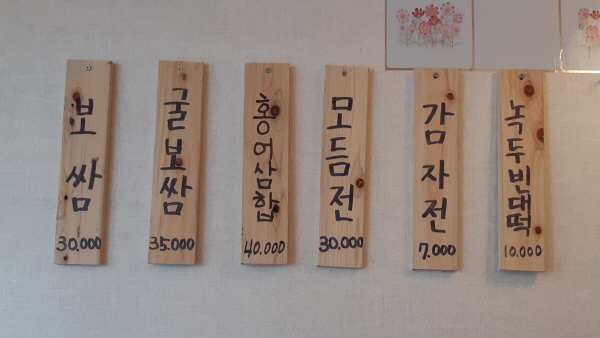 보쌈
30.000
굴보쌈
35000
홍어삼합
40.000
모듬전
30.000
감자전
7.000
녹두빈대떡
10.000